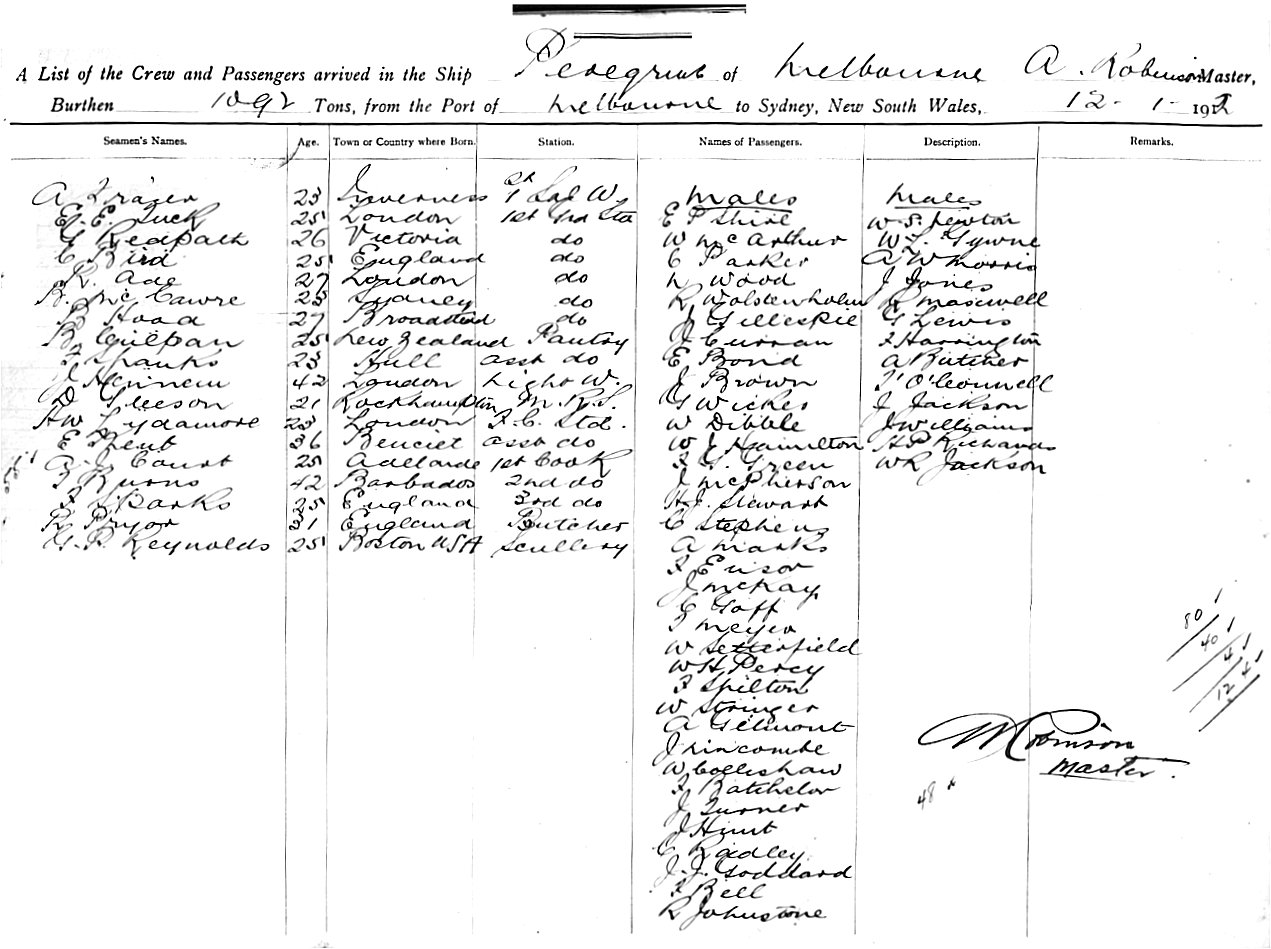 A List of the Crew and Passengers arrived in the Ship Peregrine of Melbourne A. Robinson Master,
Burthen 1092 Tons, from the Port of Melbourne to Sydney, New South Wales, 12 - 1 - 191
Seamen's Names. Age. Town or Country where Born. Station. Names of Passengers. Description. Remarks.
Males Males
A Frazer 23 Inverness Sal W.
E. E. Tuck 25 London 1st Grd Sta
G Redpath 26 Victoria do
C Bird 25 England do
R. Ade 27 London do
R. Mc 25 Sydney do
B Hood 27 Broadstead do
B 25 New Zealand Pantry
F Shanks 23 Hull asst do
J 42 London Light W.
D Gleeson 21 Rockhampton M. R. S.
HW Lydamore 23 London F. C. Std.
E Kent 36 asst do
A. J. Court 25 Adelaide 1st Cook
F Burns 42 Barbados 2nd do
F S Banks 25 England 3rd do
R Pryor 31 England Butcher
G. P. Reynolds 25 Boston USA Scullery
E P Shire
W McArthur
C Parker
W Wood
R Wolstenholm
J Gilleskie
J Curran
E Bond
J Brown
G Wickes
W Dibble
W J Hamilton
F G. Green
J McPherson
H J. Stewart
C Stephens
A Marks
F Enson
J McKay
C Goff
F Meyer
W Setterfield
W H Percy
F Spilton
W Stringer
A Gilmont
J Hincombe
W Colleshaw
F Batchelor
J Turner
J Hunt
C Radley
J. J. Goddard
F Bell
R Johnstone
W. S. Newton
W. F. Gywne
A W Morris
J Jones
R Maxwell
G Lewis
F Harrington
A Butcher
T O'Connell
J Jackson
J Williams
H P Richards
W R Jackson
80 1
40 1
4 1
12 4 1
A Robinson
Master.
48